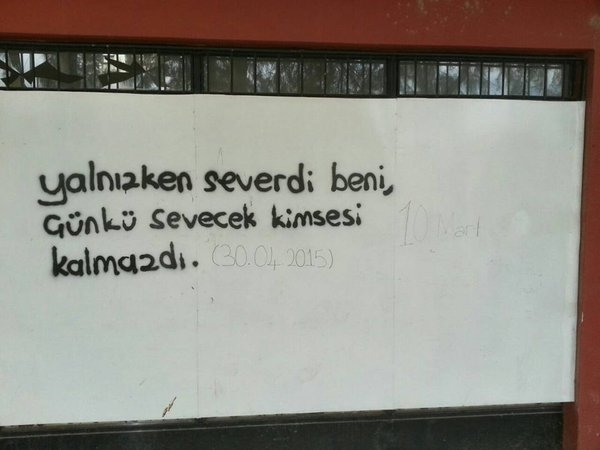 yalnızken severdi beni,
Günkü sevecek kimsesi
kalmazdı. (30.04.2015)
10 Mart